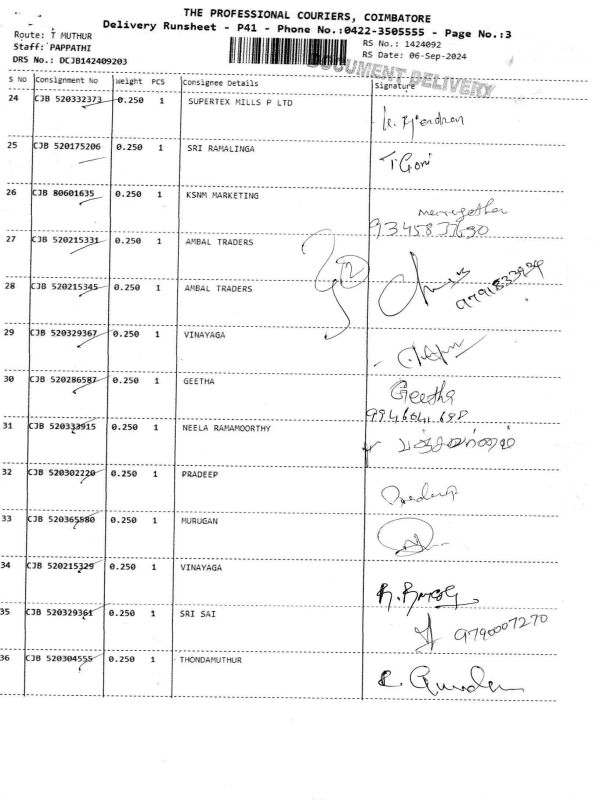 THE PROFESSIONAL COURIERS, COIMBATORE
Delivery Runsheet - P41 - Phone No.:0422-3505555 - Page No.:3
Route: T MUTHUR
RS No.: 1424092
Staff: PAPPATHI
RS Date: 06-Sep-2024
DRS No.: DCJB142409203
DOCUMENT DELIVERY
S NO Consignment No Weight PCS Consignee Details Signature
24 CJB 520332373 0.250 1 SUPERTEX MILLS P LTD
25 CJB 520175206 0.250 1 SRI RAMALINGA T Goni
26 CJB 80601635 0.250 1 KSNM MARKETING
27 CJB 520215331 0.250 1 AMBAL TRADERS
28 CJB 520215345 0.250 1 AMBAL TRADERS
29 CJB 520329367 0.250 1 VINAYAGA
30 CJB 520286587 0.250 1 GEETHA Geetha
31 CJB 520333915 0.250 1 NEELA RAMAMOORTHY
32 CJB 520302220 0.250 1 PRADEEP
33 CJB 520365580 0.250 1 MURUGAN
34 CJB 520215329 0.250 1 VINAYAGA
35 CJB 520329361 0.250 1 SRI SAI 9790007270
36 CJB 520304555 0.250 1 THONDAMUTHUR